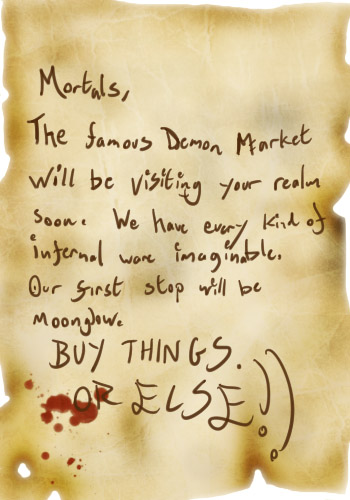 Mortals,
The famous Demon Market
will be visiting your realm
soon. We have every kind of
infernal ware imaginable.
Our first stop will be
Moonglow.
BUY THINGS.
OR ELSE!)